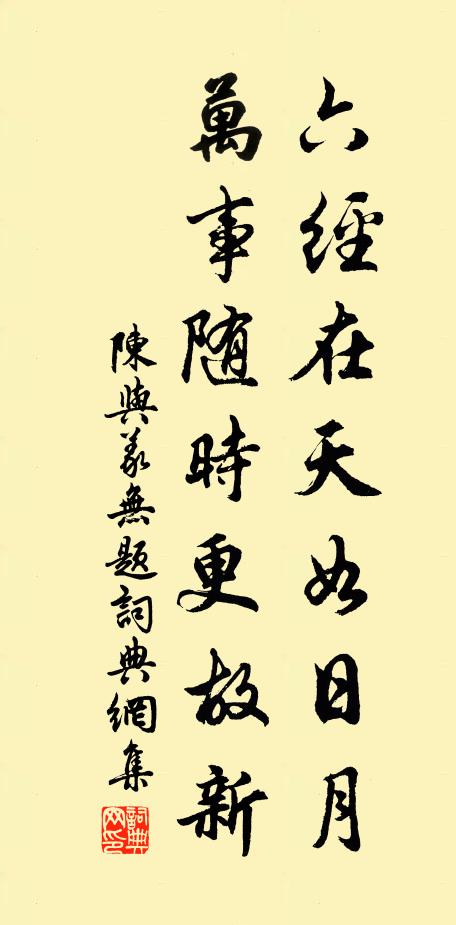 六經在天如日月
萬事隨時更故新
陳與義無題詞典網集
詞典网印